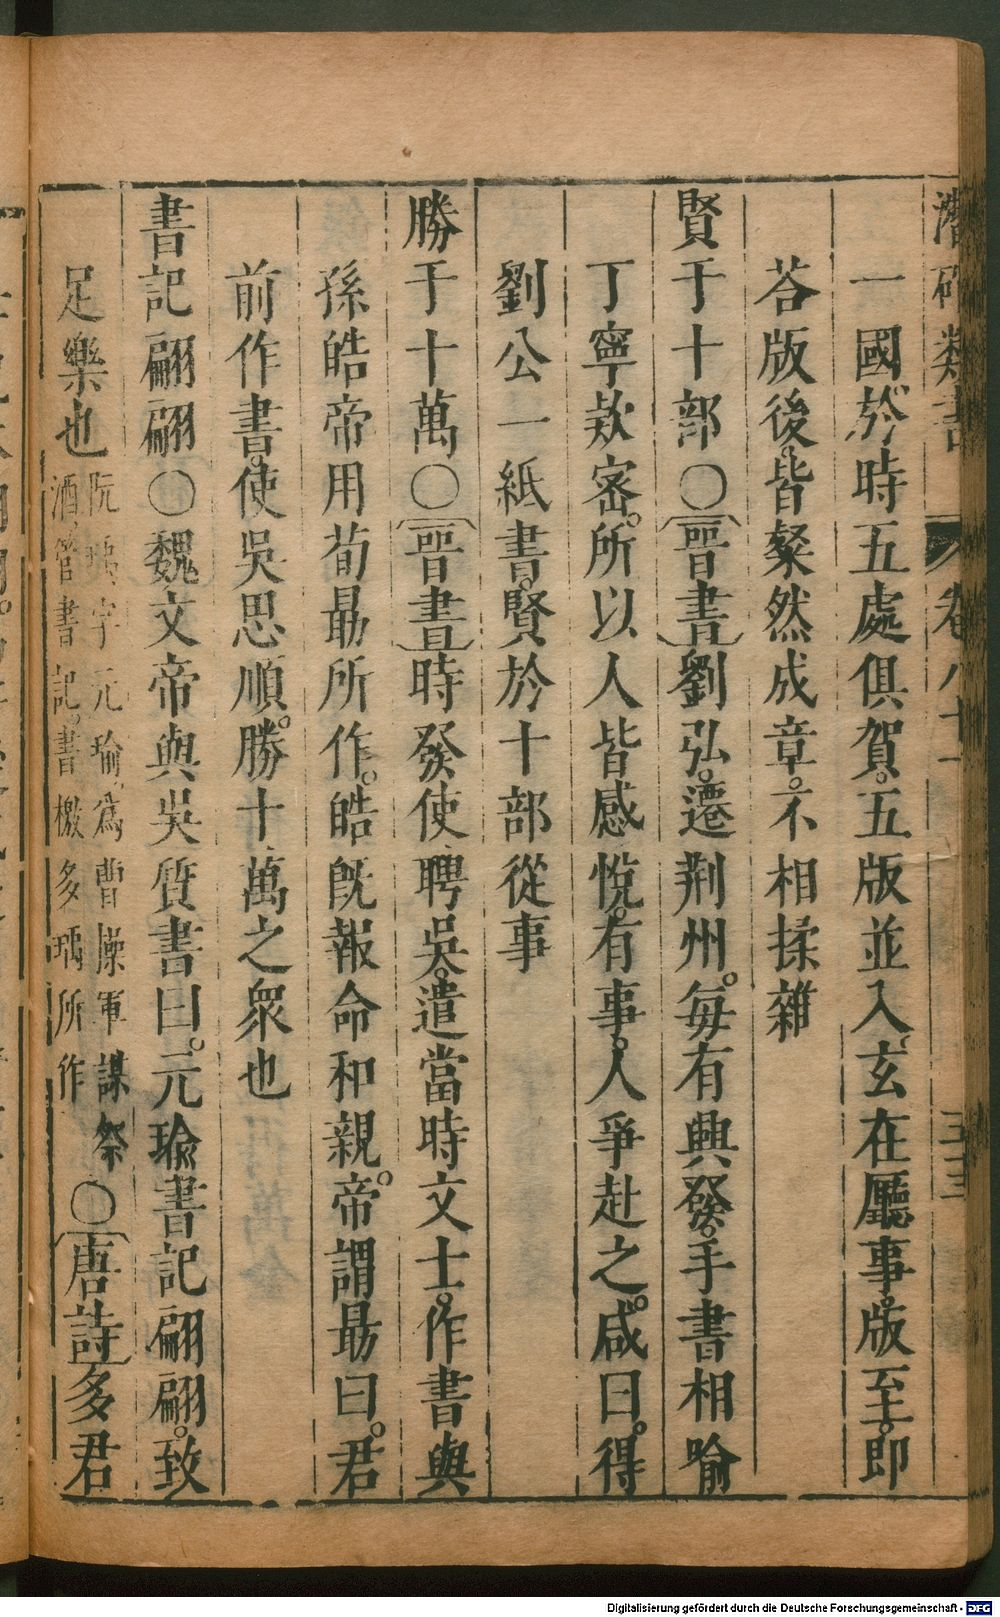 潛確類書 卷八十一 三十三
一國於時五處俱賀五版並入玄在廳事版至即
荅版後皆粲然成章不相揉雜
賢于十部〇晉書劉弘遷荆州每有興發手書相喻
丁寧欵密所以人皆感悅有事人爭赴之咸曰得
劉公一紙書賢於十部從事
勝于十萬〇晉書時發使聘吳遣當時文士作書與
孫皓帝用荀勗所作皓旣報命和親帝謂勗曰君
前作書使吳思順勝十萬之衆也
書記翩翩〇魏文帝與吳質書曰元瑜書記翩翩致
足樂也阮瑀字元瑜爲曹操軍謀祭酒管書記書檄多瑀所作〇唐詩多君
Digitalisierung gefördert durch die Deutsche Forschungsgemeinschaft - DFG